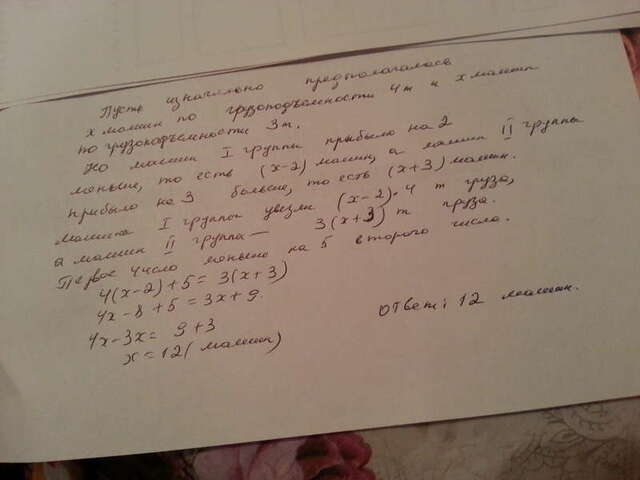 Пусть изначально предполагалось
x машин по грузоподъемности 4т и x машин
по грузоподъемности 3т.
Но машин I группы прибыло на 2
меньше, то есть (x-2) машин, а машин II группы
прибыло на 3 больше, то есть (x+3) машин.
Машина I группы увезли (x-2)·4 т груза,
а машин II группа — 3(x+3) т груза.
Первое число меньше на 5 второго числа.
4(x-2)+5=3(x+3)
4x-8+5=3x+9.
4x-3x=9+3
x=12(машин)
Ответ: 12 машин.